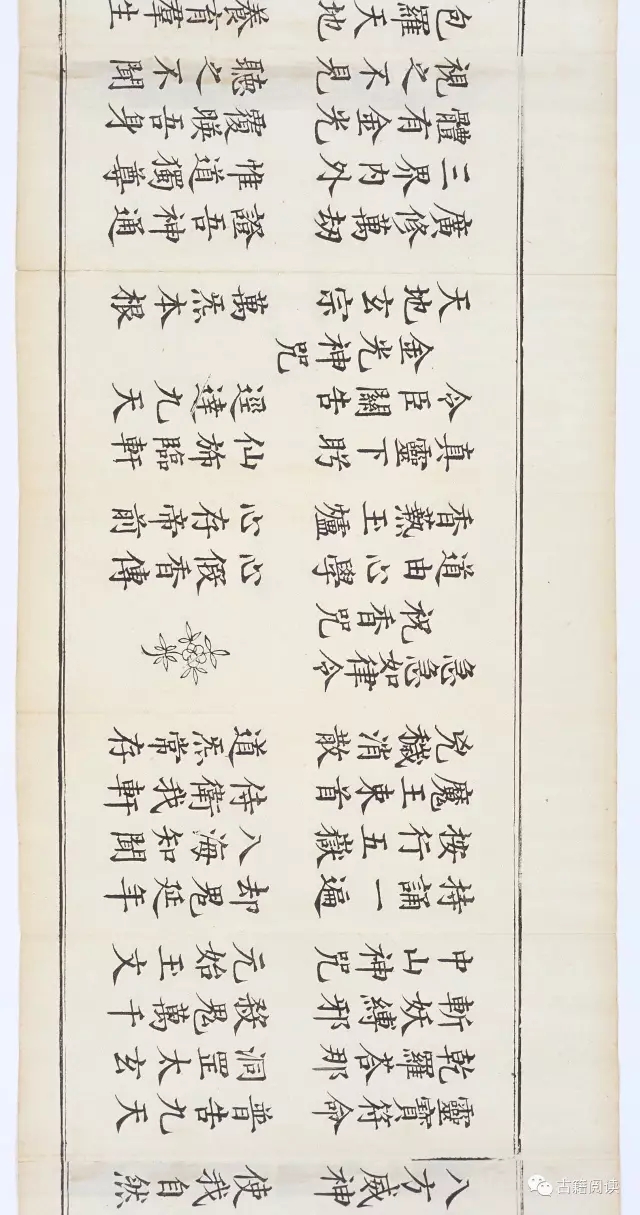 八方威神 使我自然
靈寶符命 普告九天
乾羅荅那 洞罡太玄
斬妖縛邪 殺鬼萬千
中山神咒 元始玉文
持誦一遍 却鬼延年
按行五嶽 八海知聞
魔王束首 侍衛我軒
兇穢消散 道炁常存
急急如律令
祝香咒
道由心學 心假香傳
香爇玉爐 心存帝前
真靈下盻 仙旆臨軒
令臣關告 逕達九天
金光神咒
天地玄宗 萬炁本根
廣修萬劫 證吾神通
三界內外 惟道獨尊
體有金光 覆暎吾身
視之不見 聽之不聞
包羅天地 養育羣生
古籍阅读